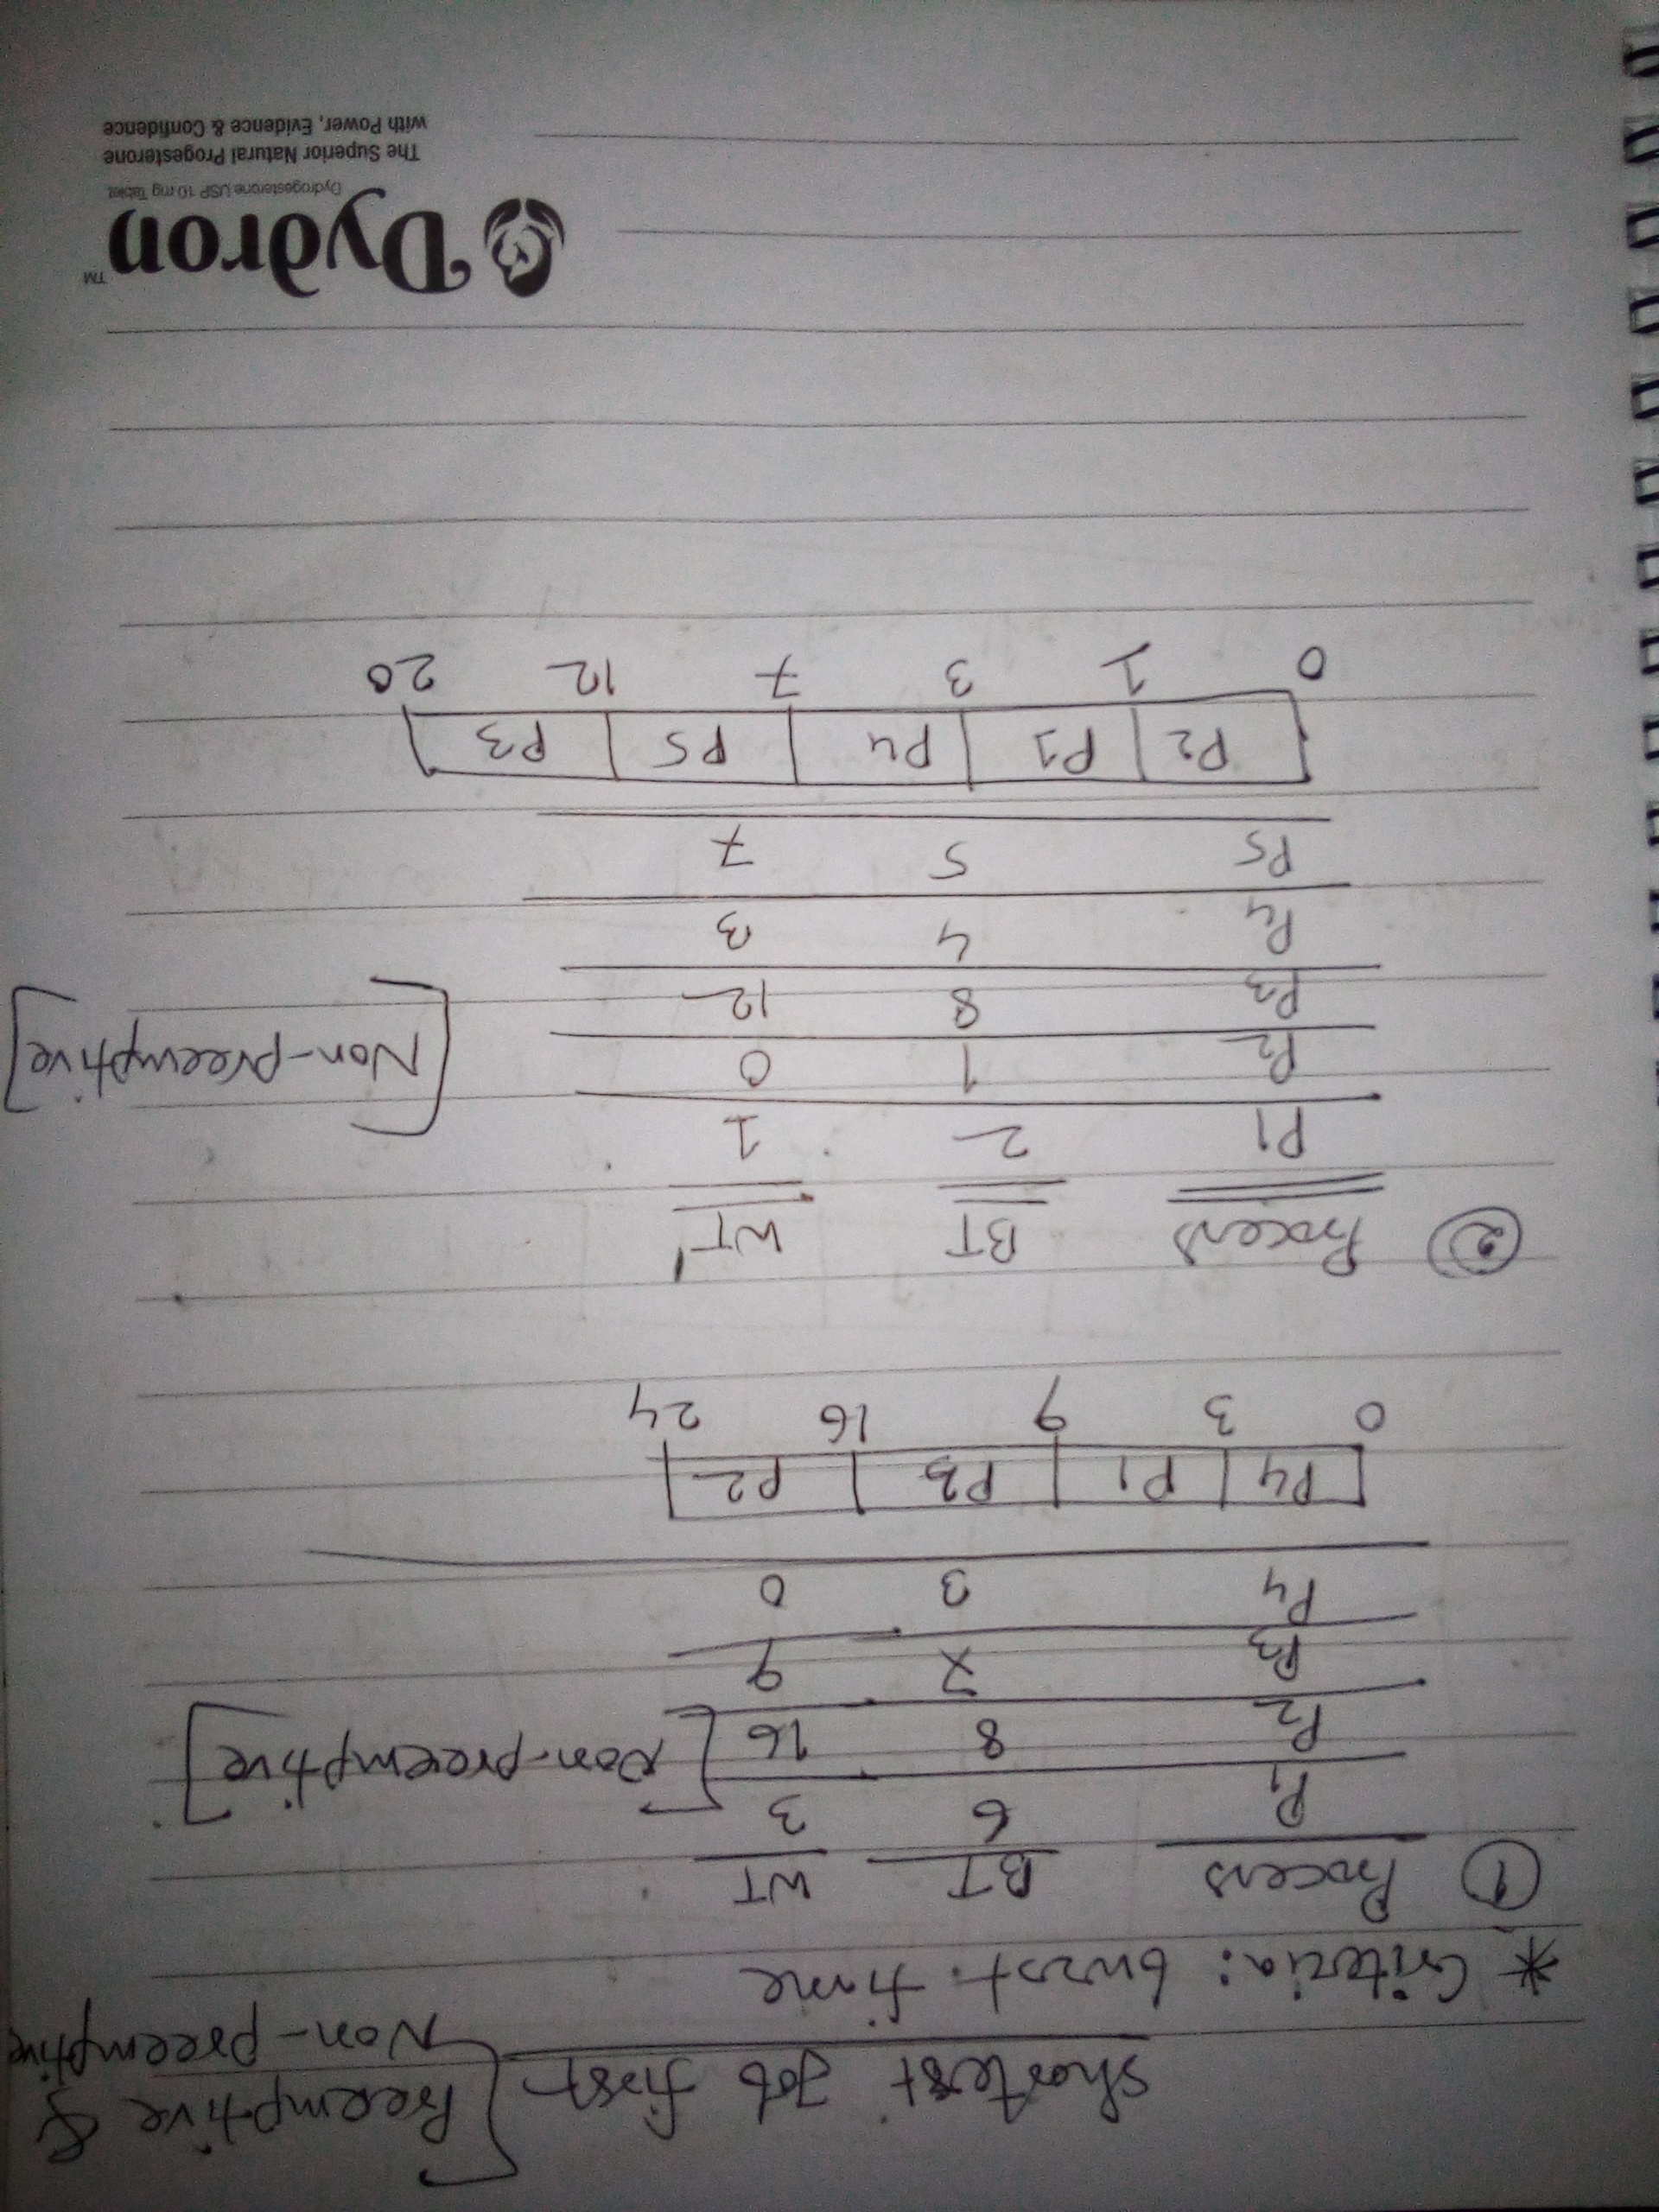 Shortest Job first [Preemptive &
Non-preemptive
* Criteria: burst. time
① Process BT WT
P1 6 3
P2 8 16 [Non-preemptive]
P3 7 9
P4 3 0
P4 P1 P3 P2
0 3 9 16 24
② Process BT WT
P1 2 1
P2 1 0 [Non-preemptive]
P3 8 12
P4 4 3
P5 5 7
P2 P1 P4 P5 P3
0 1 3 7 12 20
Dydron™
Dydrogesterone USP 10 mg Tablet
The Superior Natural Progesterone
with Power, Evidence & Confidence